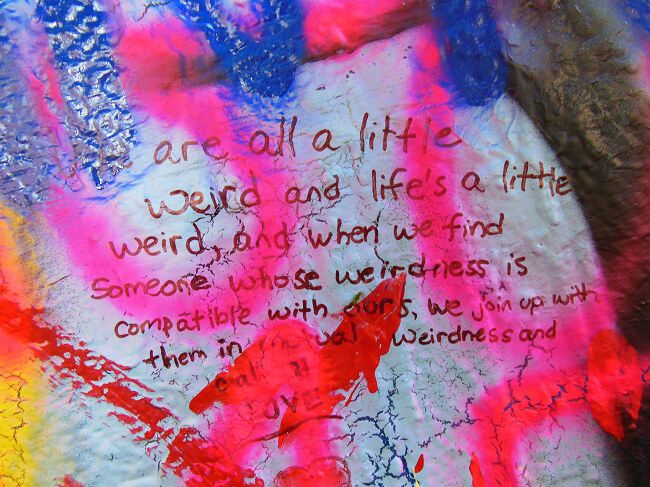 are all a little
weird and life's a little
weird, and when we find
Someone whose weirdness is
compatible with ours, we join up with
them in mutual weirdness and
call it
LOVE